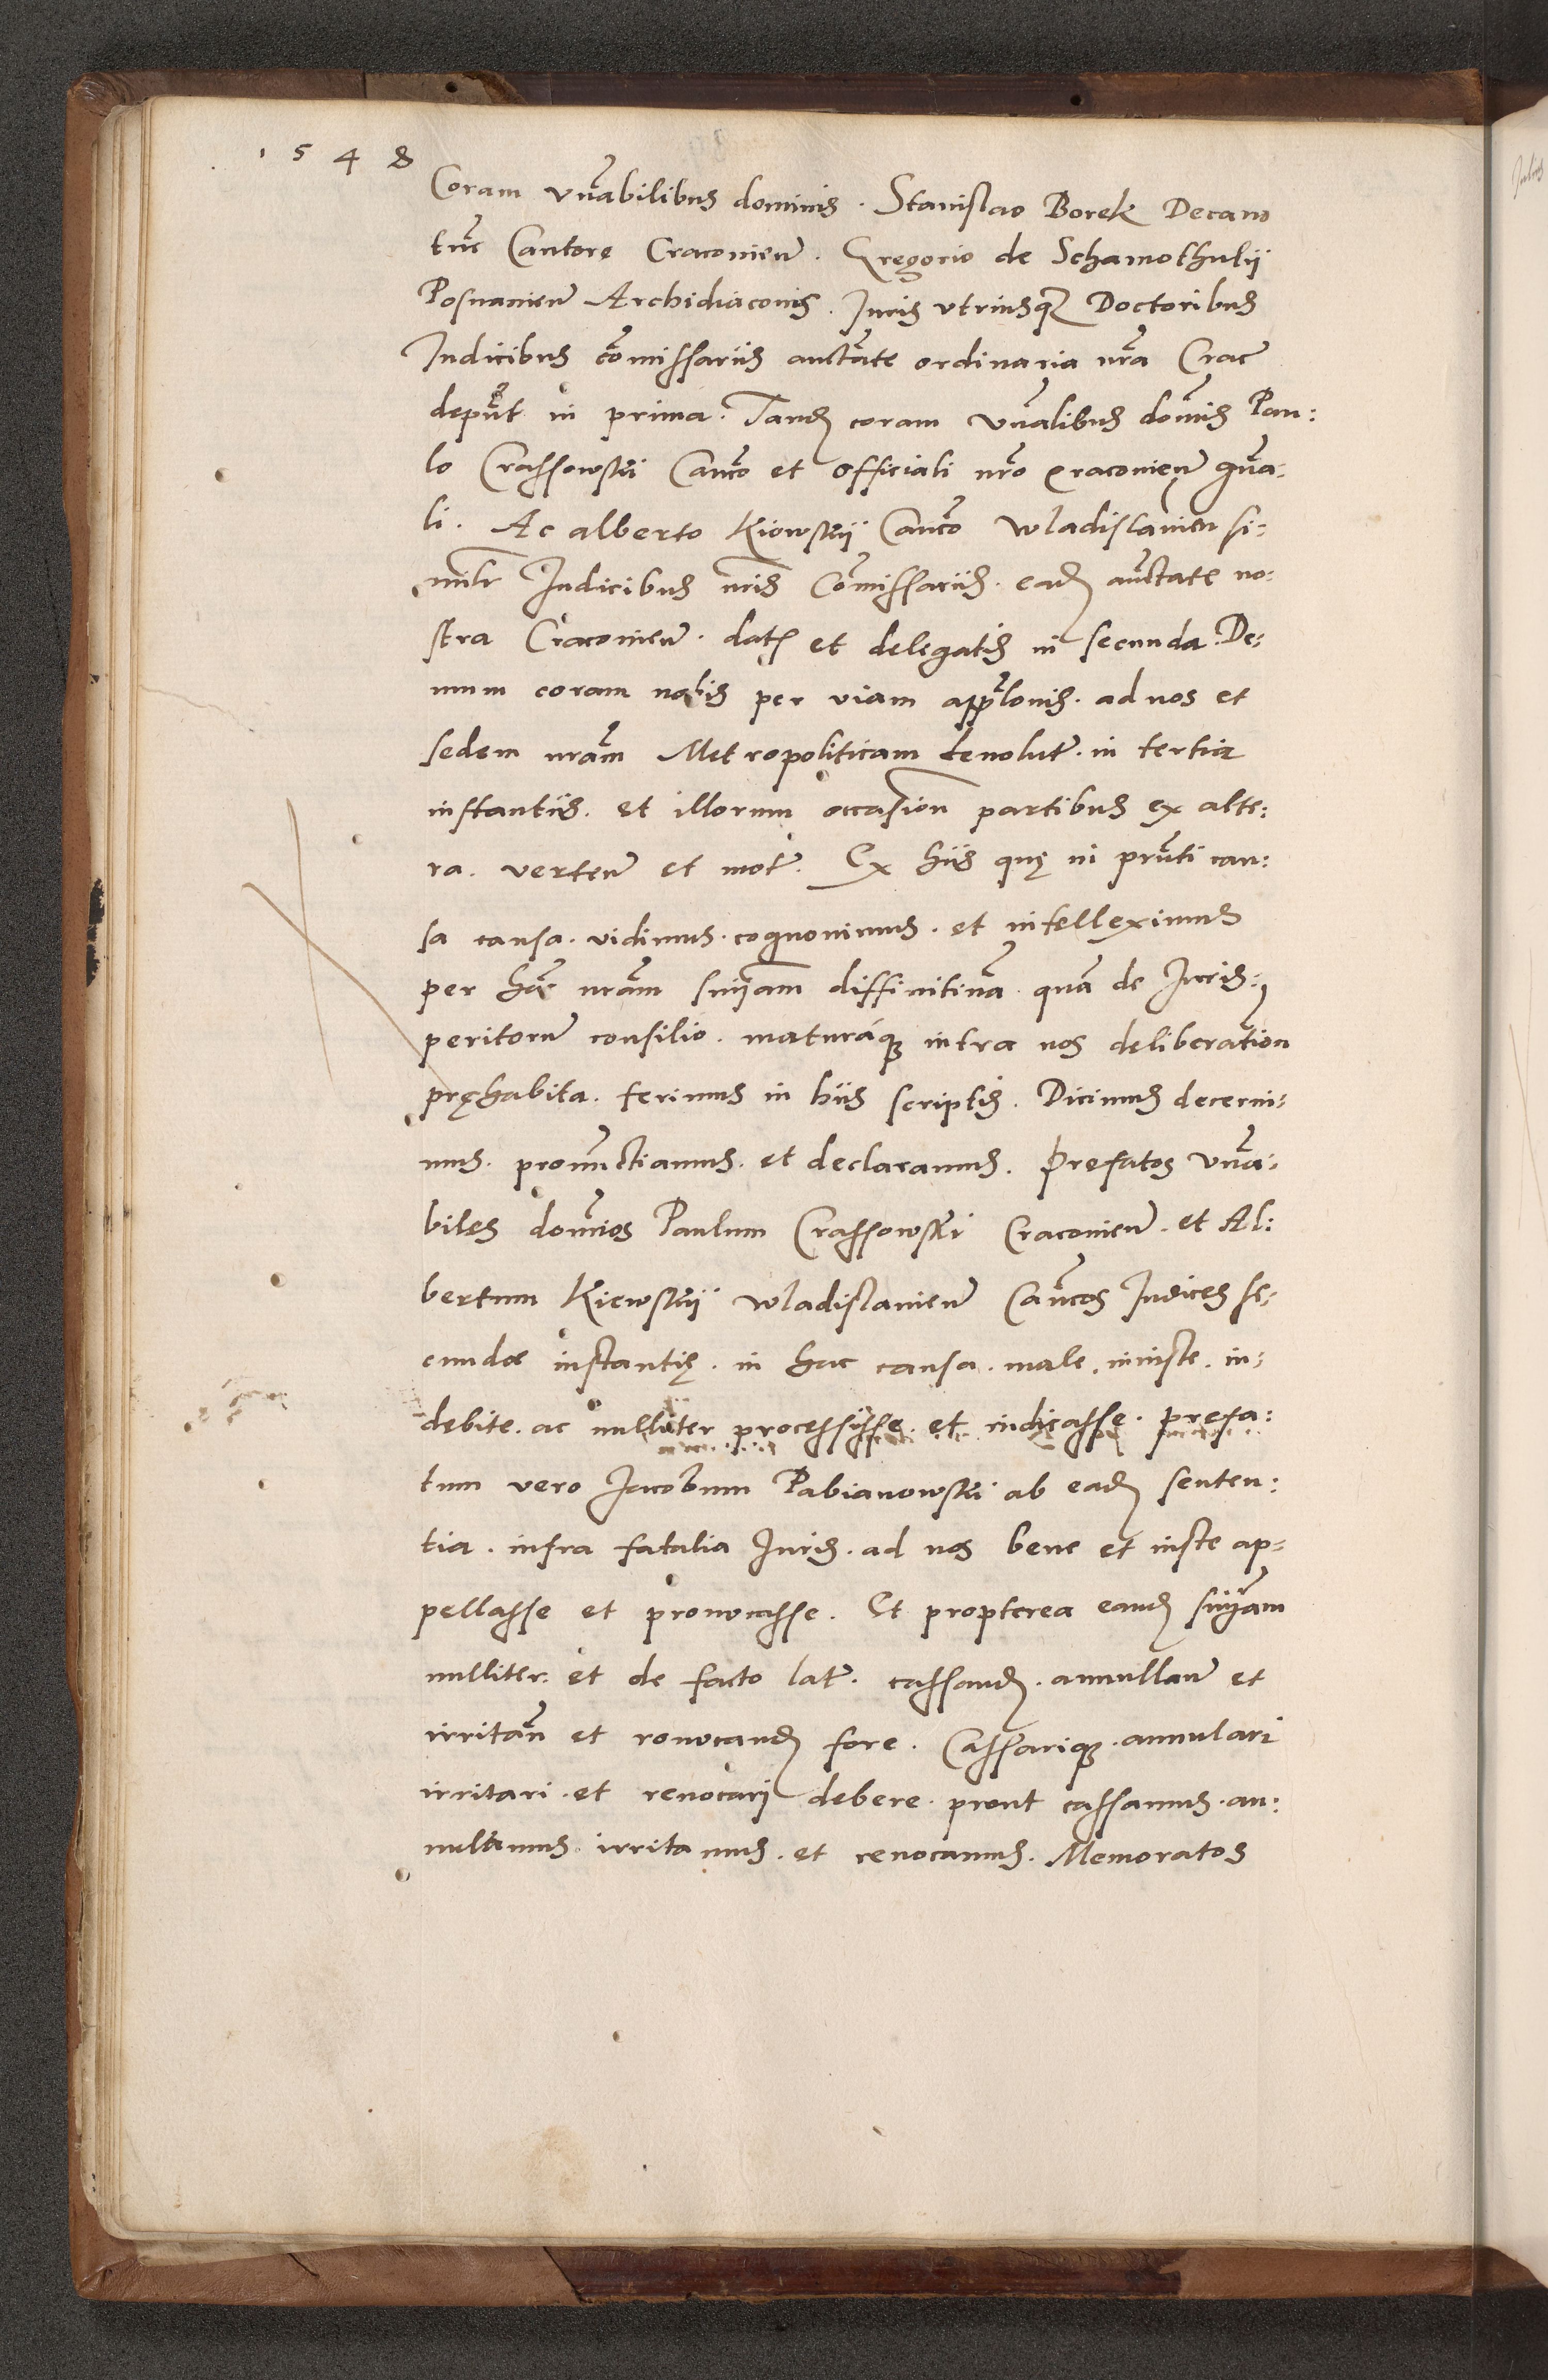 1 5 4 8
Coram vn̄abilibus dominis . Stanislao Borek Decano
tūc Cantore Cracovien̄ . Gregorio de Schamothulij
Posnanien̄ Archidiaconis . Juris vtriusq̄ Doctoribus
Judicibus cōmissariis auctāte ordinaria nr̄a Crac̄
depūt in prima . Tandē coram vn̄alibus domīs Pau:
lo Crassowski Canc̄o et officiali nr̄o Cracovien̄ gn̄a:
li . Ac alberto Kiowskij Canc̄o wladislavien si:
milr̄ Judicibus nr̄is Cōmissariis . eadē auctate no:
stra Cracovien̄ . dat̄ et delegatis in secunda . De:
mum coram nobis per viam appl̄lonis . ad nos et
sedem nr̄am Metropoliticam devolut̄ . in tertia
instantiis . et illorum occasion̄ partibus ex alte:
ra . verten̄ et mot̄ . Ex hiis quę in pn̄ti cau:
sa causa . vidimus . cognovimus . et intelleximus
per hāc nr̄am sn̄iam diffinitivā quā de Juris:
peritorū consilio . maturáq̨ intra nos deliberation
pręhabita . ferimus in hiis scriptis . Dicimus decerni:
mus . pronūctiamus . et declaramus . Prefatos vn̄a:
biles domīos Paulum Crassowski Cracovien̄ . et Al:
bertum Kiewskij wladislavien̄ Canc̄os Judices se:
cundæ instantię . in hac causa . male . iniuste . in:
debite . ac nulliter processisse . et iudicasse . prefa:
tum vero Jacobum Pabianowski ab eadē senten:
tia . infra fatalia Juris . ad nos bene et iuste ap:
pellasse et provocasse . Et propterea eandē sn̄iam
nulliter . et de facto lat̄ . cassandē . annullan̄ et
irritan̄ et revocandē fore . Cassariq̨ . annulari
irritari . et revocari debere . prout cassamus . an:
nulamus . irritamus . et revocamus . Memoratos